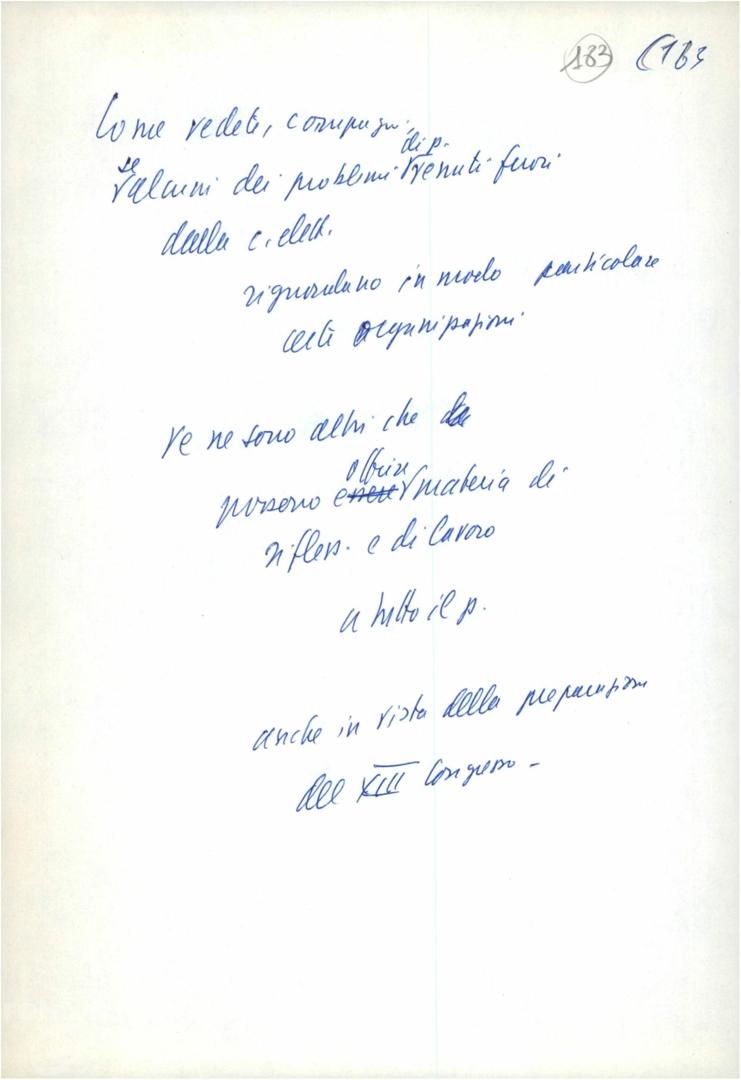 183 (183
Come vedete, compagni,
se alcuni dei problemi di p. venuti fuori
dalla c. elett.
riguardano in modo particolare
certe organizzazioni
ve ne sono altri che
possono essere offrire materia di
rifless. e di lavoro
a tutto il p.
anche in vista della preparazione
del XIII Congresso -